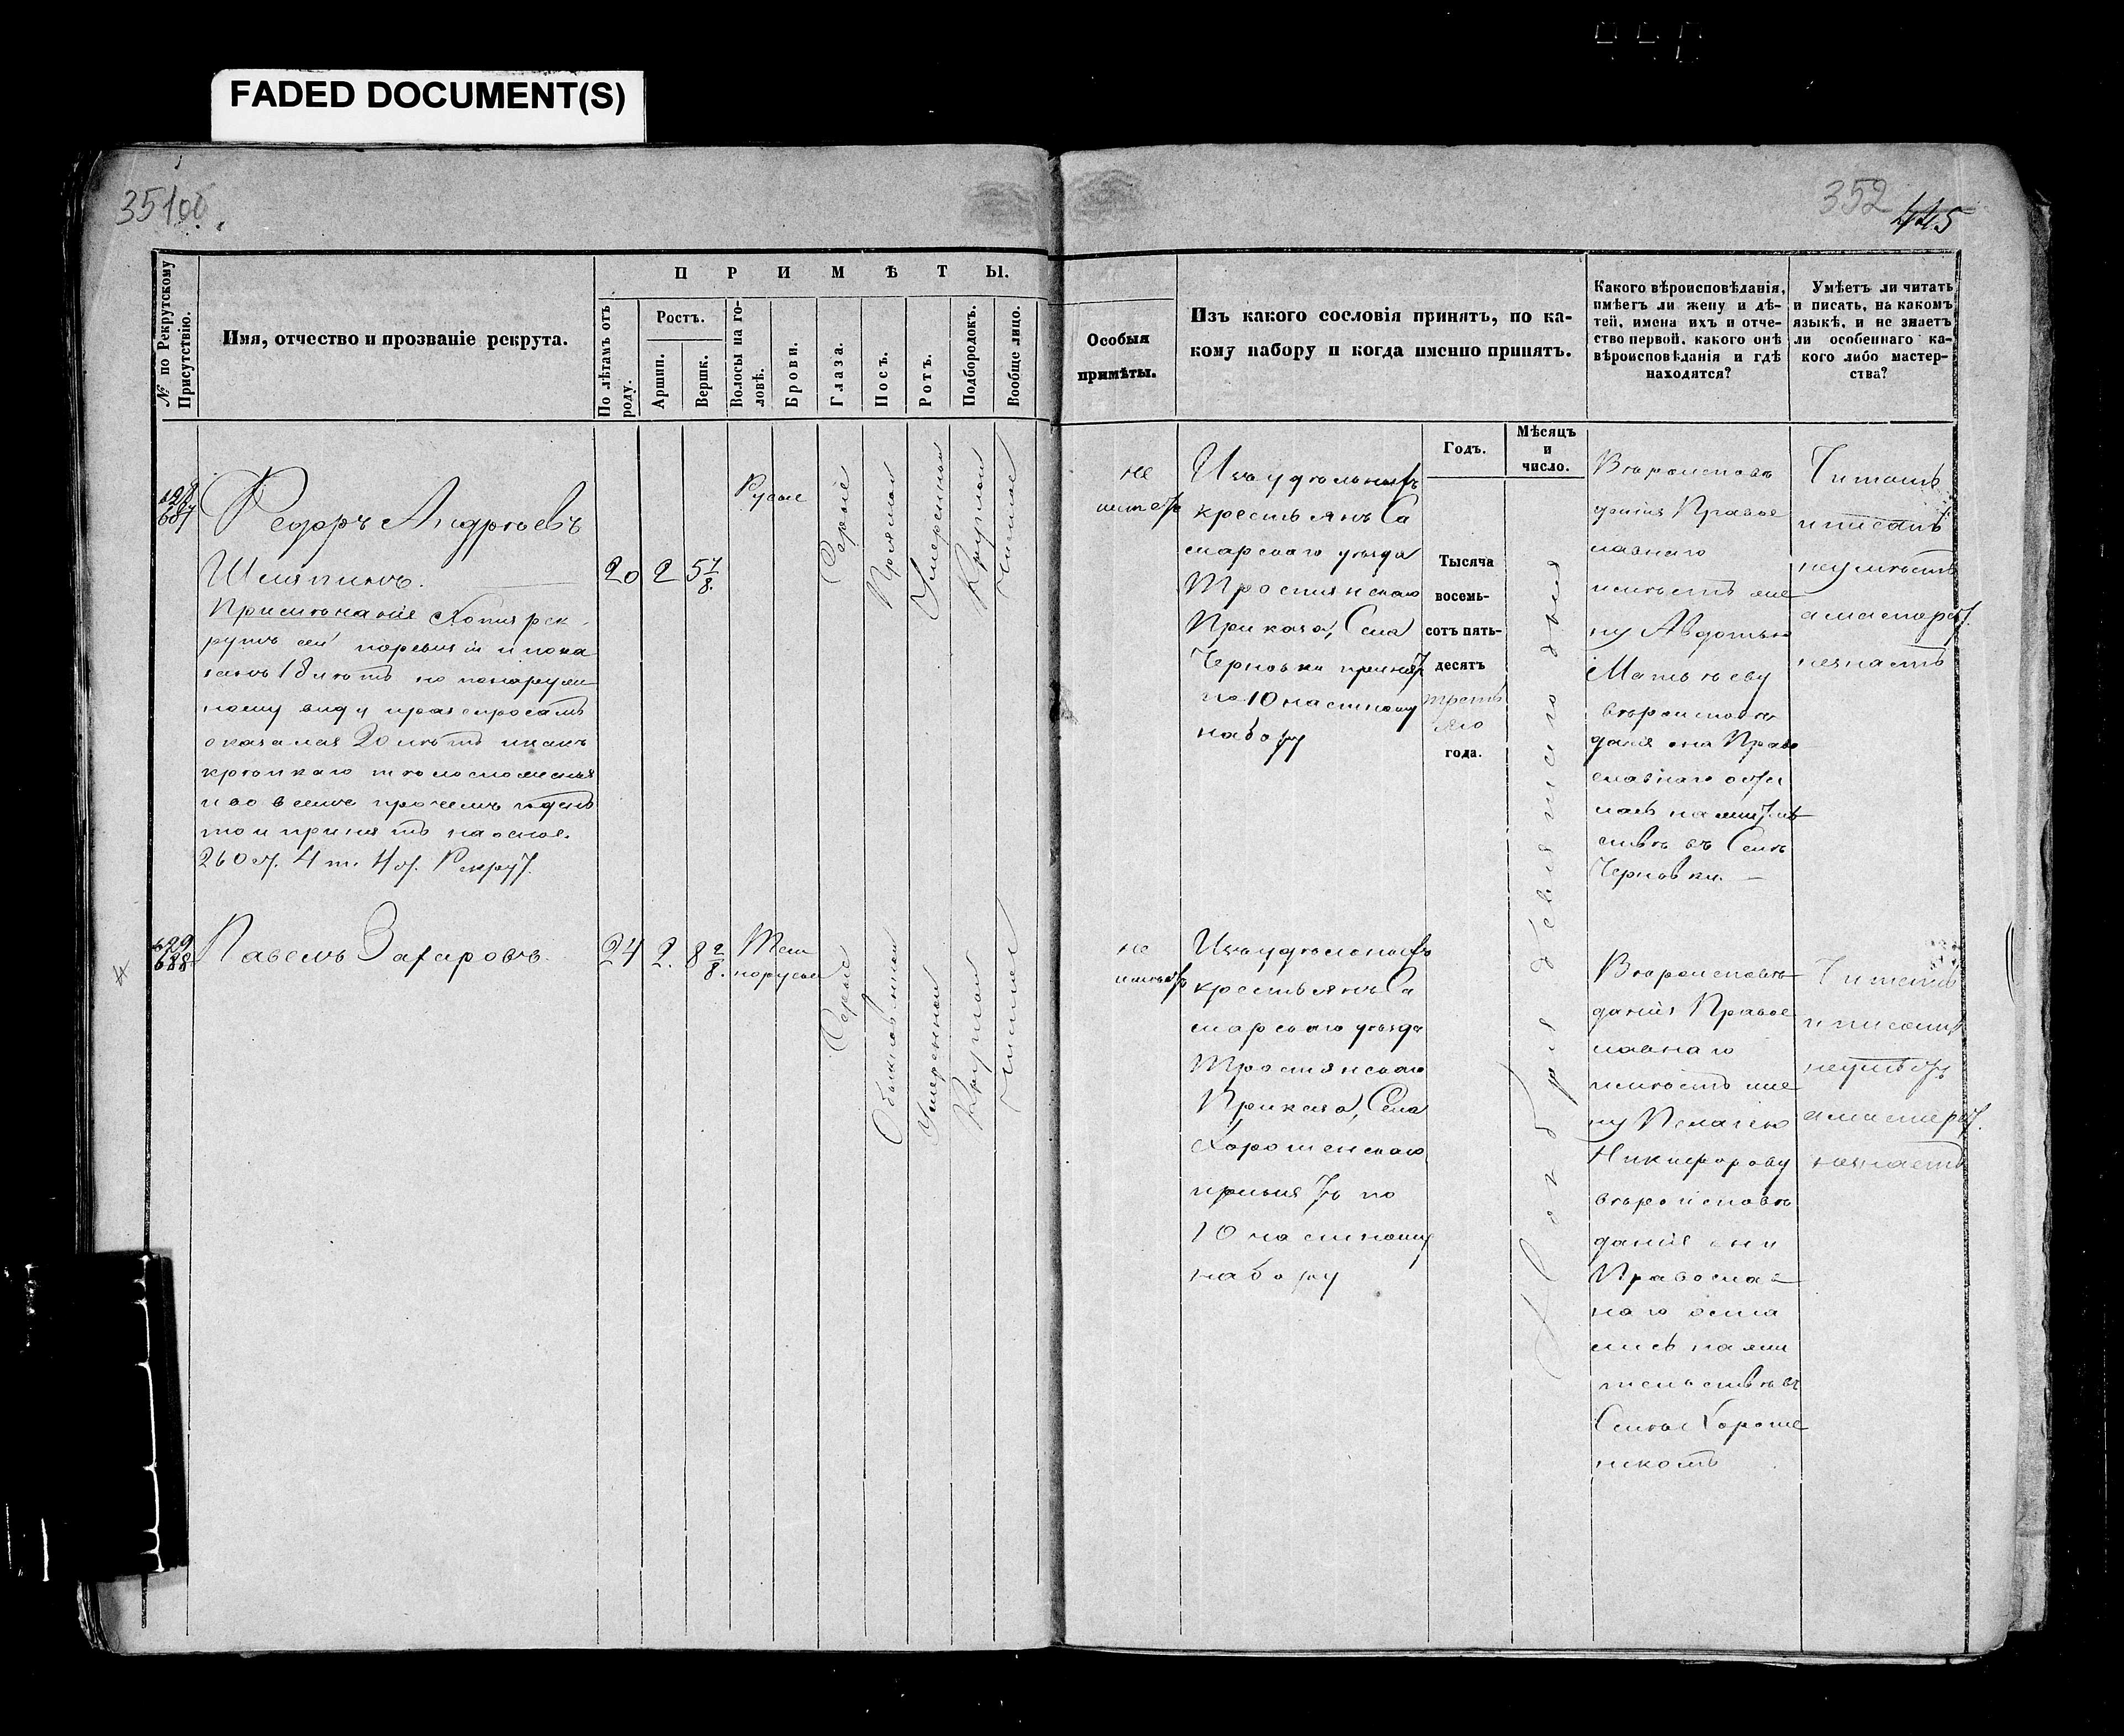 FADED DOCUMENT(S)
352
445
№ по Рекрутскому Присутствію.
Имя, отчество и прозваніе рекрута.
ПРИМѢТЫ.
По лѣтамъ отъ роду.
Ростъ.
Аршин.
Вершк.
Волосы на головѣ.
Брови.
Глаза.
Носъ.
Ротъ.
Подбородокъ.
Вообще лицо.
Особыя
примѣты.
Изъ какого сословія принятъ, по ка-
кому набору и когда именно принятъ.
Годъ.
Мѣсяцъ
и
число.
Какого вѣроисповѣданія,
имѣетъ ли жену и дѣ-
тей, имена ихъ и отче-
ство первой, какого онѣ
вѣроисповѣданія и гдѣ
находятся?
Умѣетъ ли читать
и писать, на какомъ
языкѣ, и не знаетъ
ли особеннаго ка-
кого либо мастер-
ства?
687
Федоръ Андреевъ
Шляпинъ.
Примѣчаніе Хотя рек
рутъ сей
18 лѣтъ но по наруж
ному виду
оказался 20 лѣтъ
крѣпкаго тѣлосложенія
и во всемъ прочемъ годенъ
то и принятъ на основ.
260 ст. 4 т. Уст. Рекрут.
20
2
5 7/8.
Русые
Серые
Прямой
Умеренный
Круглой
Чистое
не
имеетъ
Изъ удѣльныхъ
крестьянъ Са
марскаго уѣзда
Тростянскаго
Приказа, Села
Черновки принятъ
по 10 частному
набору
Тысяча
восемь-
сотъ пять-
десятъ
треть
яго
года.
Ноября девятого дня
Вѣроисповѣ
данія Правос
лавнаго
имѣетъ же
ну Авдотью
Матвѣеву
вѣроисповѣ
данія она Право
славнаго оста
лась на жит
ствѣ въ Селѣ
Черновки.
Читать
и писать
неумѣетъ
а мастерст.
незнаетъ
688
Павелъ Захаровъ.
24
2.
8 2/8.
Тем
норусые
Серые
Обыкновенной
Умеренной
Круглой
Чистое
не
имѣетъ
Изъ удѣльныхъ
крестьянъ Са
марскаго уѣзда
Тростянскаго
Приказа, Села
Хорошенскаго
принятъ по
10 частному
набору
Вѣроисповѣ
данія Правос
лавнаго
имѣетъ же
ну Пелагею
Никифорову
вѣроисповѣ
данія они
Правосла-
наго оста
лись на жи
тельствѣ въ
Селѣ Хороше
нскомъ
Читать
и писать
неумѣетъ
а мастерст.
незнаетъ